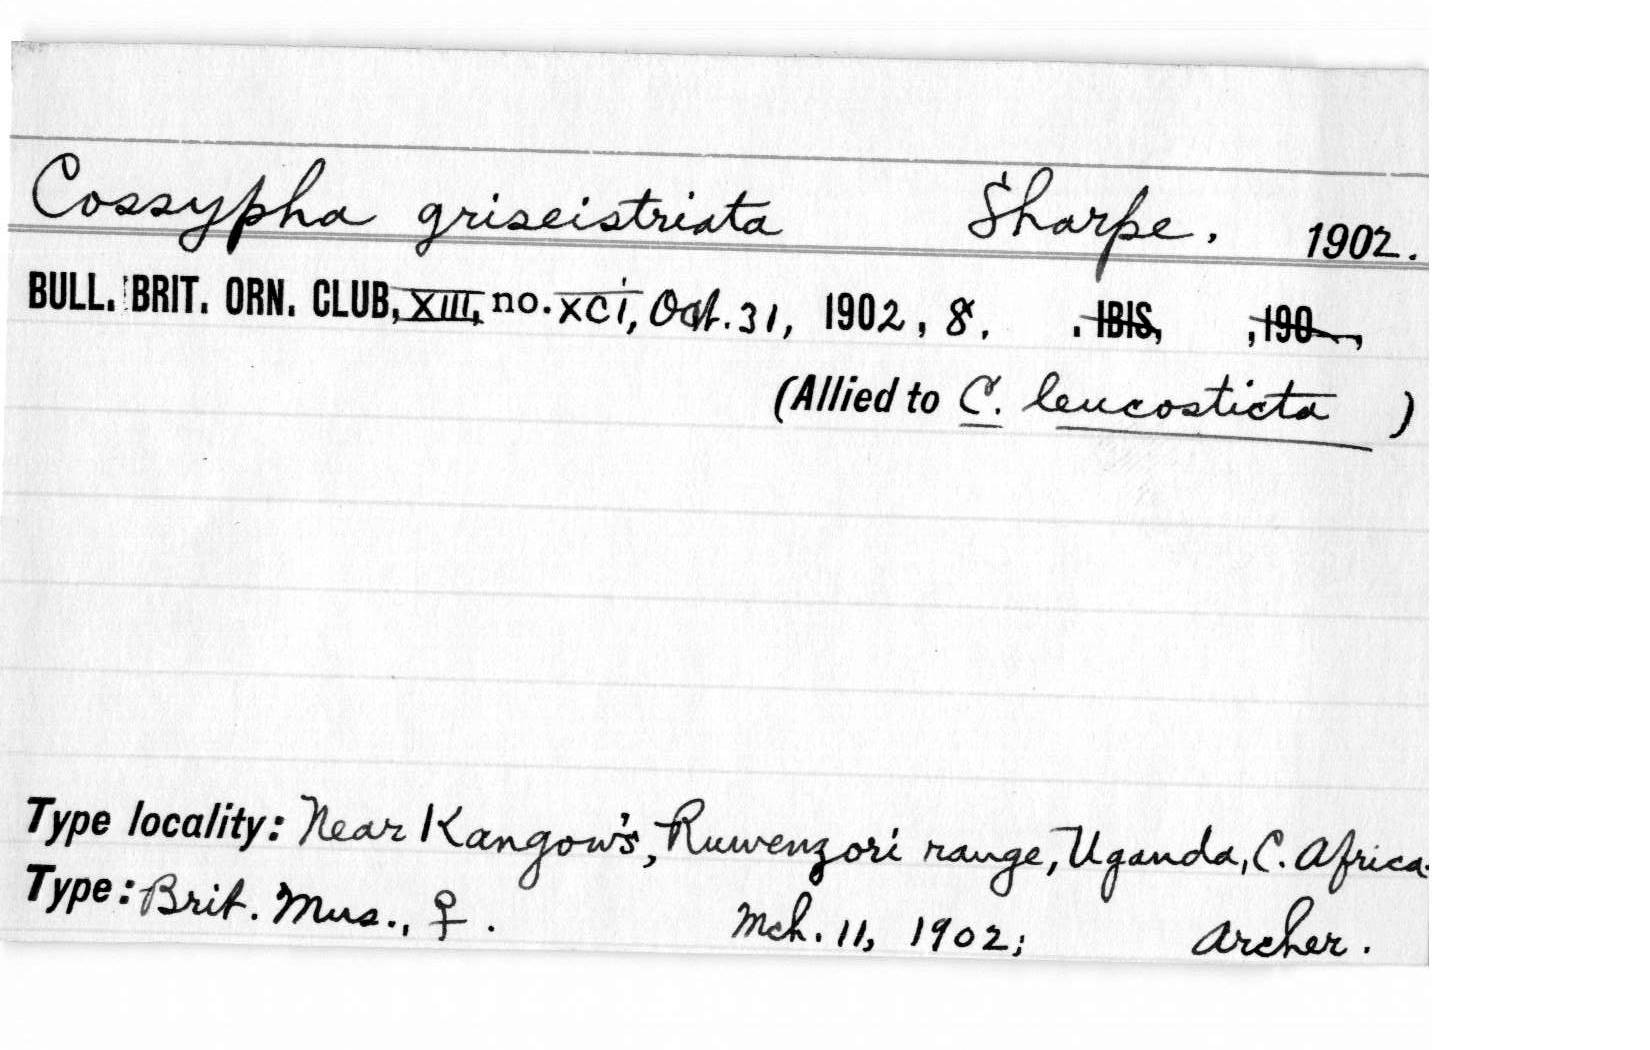 Cossypha griseistriata Sharpe. 1902.
BULL. BRIT. ORN. CLUB, XIII, no. xci, Oct. 31, 1902, 8. . IBIS, , 190 ,
(Allied to C. leucosticta )
Type locality: Near Kangow's, Ruwenzori range, Uganda, C. Africa.
Type: Brit. Mus., ♀. Mch. 11, 1902; Archer.